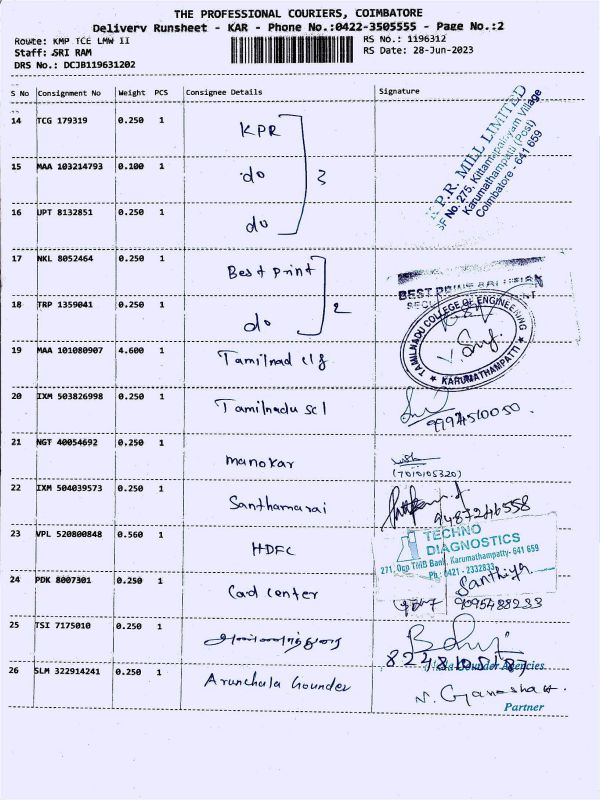 THE PROFESSIONAL COURIERS, COIMBATORE
Delivery Runsheet - KAR - Phone No.:0422-3505555 - Page No.:2
Route: KMP TCE LMW II
RS No.: 1196312
Staff: SRI RAM
RS Date: 28-Jun-2023
DRS No.: DCJB119631202
S No Consignment No Weight PCS Consignee Details Signature
14 TCG 179319 0.250 1 KPR
15 MAA 103214793 0.100 1 do 3
16 UPT 8132851 0.250 1 do
K.P.R. MILL LIMITED
SF No. 275, Kittampalayam Village
Karumathampatti (Post)
Coimbatore - 641 659
17 NKL 8052464 0.250 1 Best print
18 TRP 1359041 0.250 1 do 2
BEST PRINT
TAMILNADU COLLEGE OF ENGINEERING
★ KARUMATHAMPATTI ★
19 MAA 101080907 4.600 1 Tamilnad clg
20 IXM 503826998 0.250 1 Tamilnadu scl
21 NGT 40054692 0.250 1 manokar
(7010105320)
22 IXM 504039573 0.250 1 Santhamarai
9487246558
23 VPL 520800848 0.560 1 HDFC
TECHNO
DIAGNOSTICS
271, Opp TMB Bank, Karumathampatty- 641 659
Ph : 0421 - 2332833
24 PDK 8007301 0.250 1 Cad center
Santhiya
9095488233
25 TSI 7175010 0.250 1
26 SLM 322914241 0.250 1 Arunchala Gounder
Gounder Agencies
N. Gyanesha
Partner